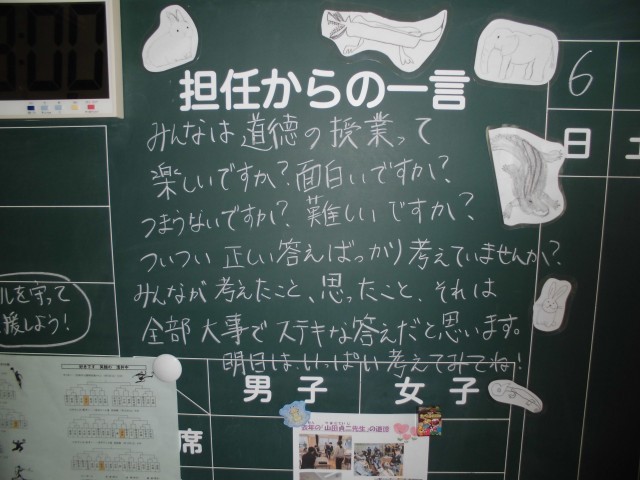 担任からの一言
みんなは道徳の授業って
楽しいですか？面白いですか？
つまらないですか？難しいですか？
ついつい正しい答えばっかり考えていませんか？
みんなが考えたこと、思ったこと、それは
全部大事でステキな答えだと思います。
明日は、いっぱい考えてみてね！
6
日
土
ルを守って
援しよう！
男子
女子
席
「山田貞二先生」の道徳